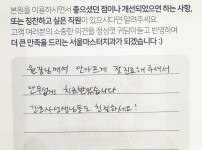 본원을 이용하시면서 좋았던 점이나 개선되었으면 하는 사항,
또는 칭찬하고 싶은 직원이 있으시다면 알려주세요.
고객 여러분의 소중한 의견을 정성껏 귀담아듣고 반영하여
더 큰 만족을 드리는 서울마스터치과가 되겠습니다 :)
원장님께서 안아프게 잘 진료해주셔서
안무섭게 치료받았습니다
간호사선생님들도 친절하세요!